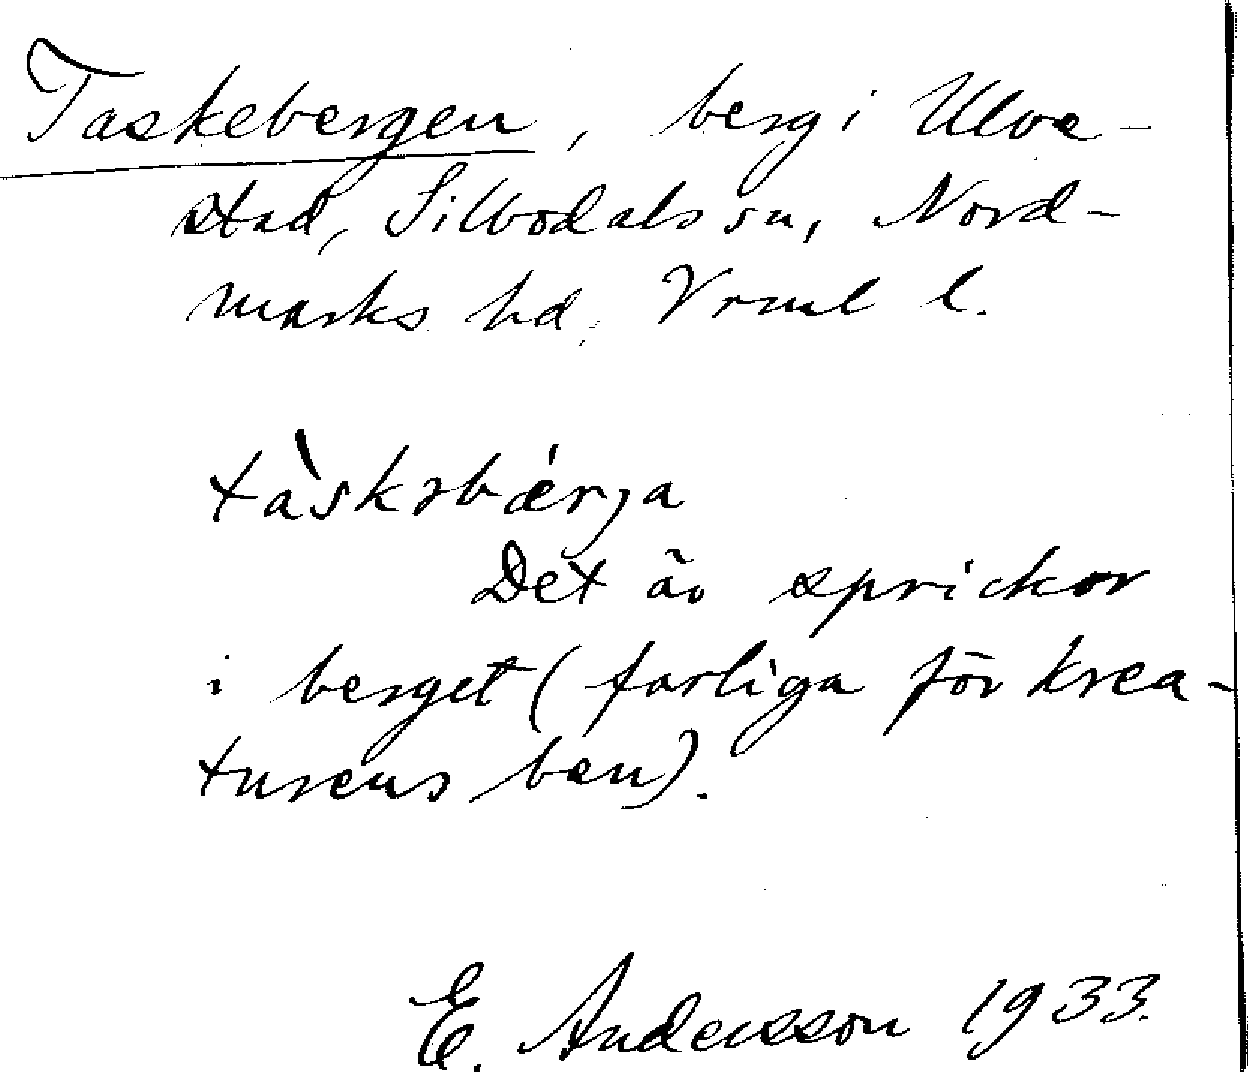 Taskebergen, berg i Ulve-
stad, Silbodals sn, Nord-
marks hd, Vrml l.
tàskəbǽrja
Det är sprickor
i berget (farliga för krea-
turens ben).
E. Andersson 1933.